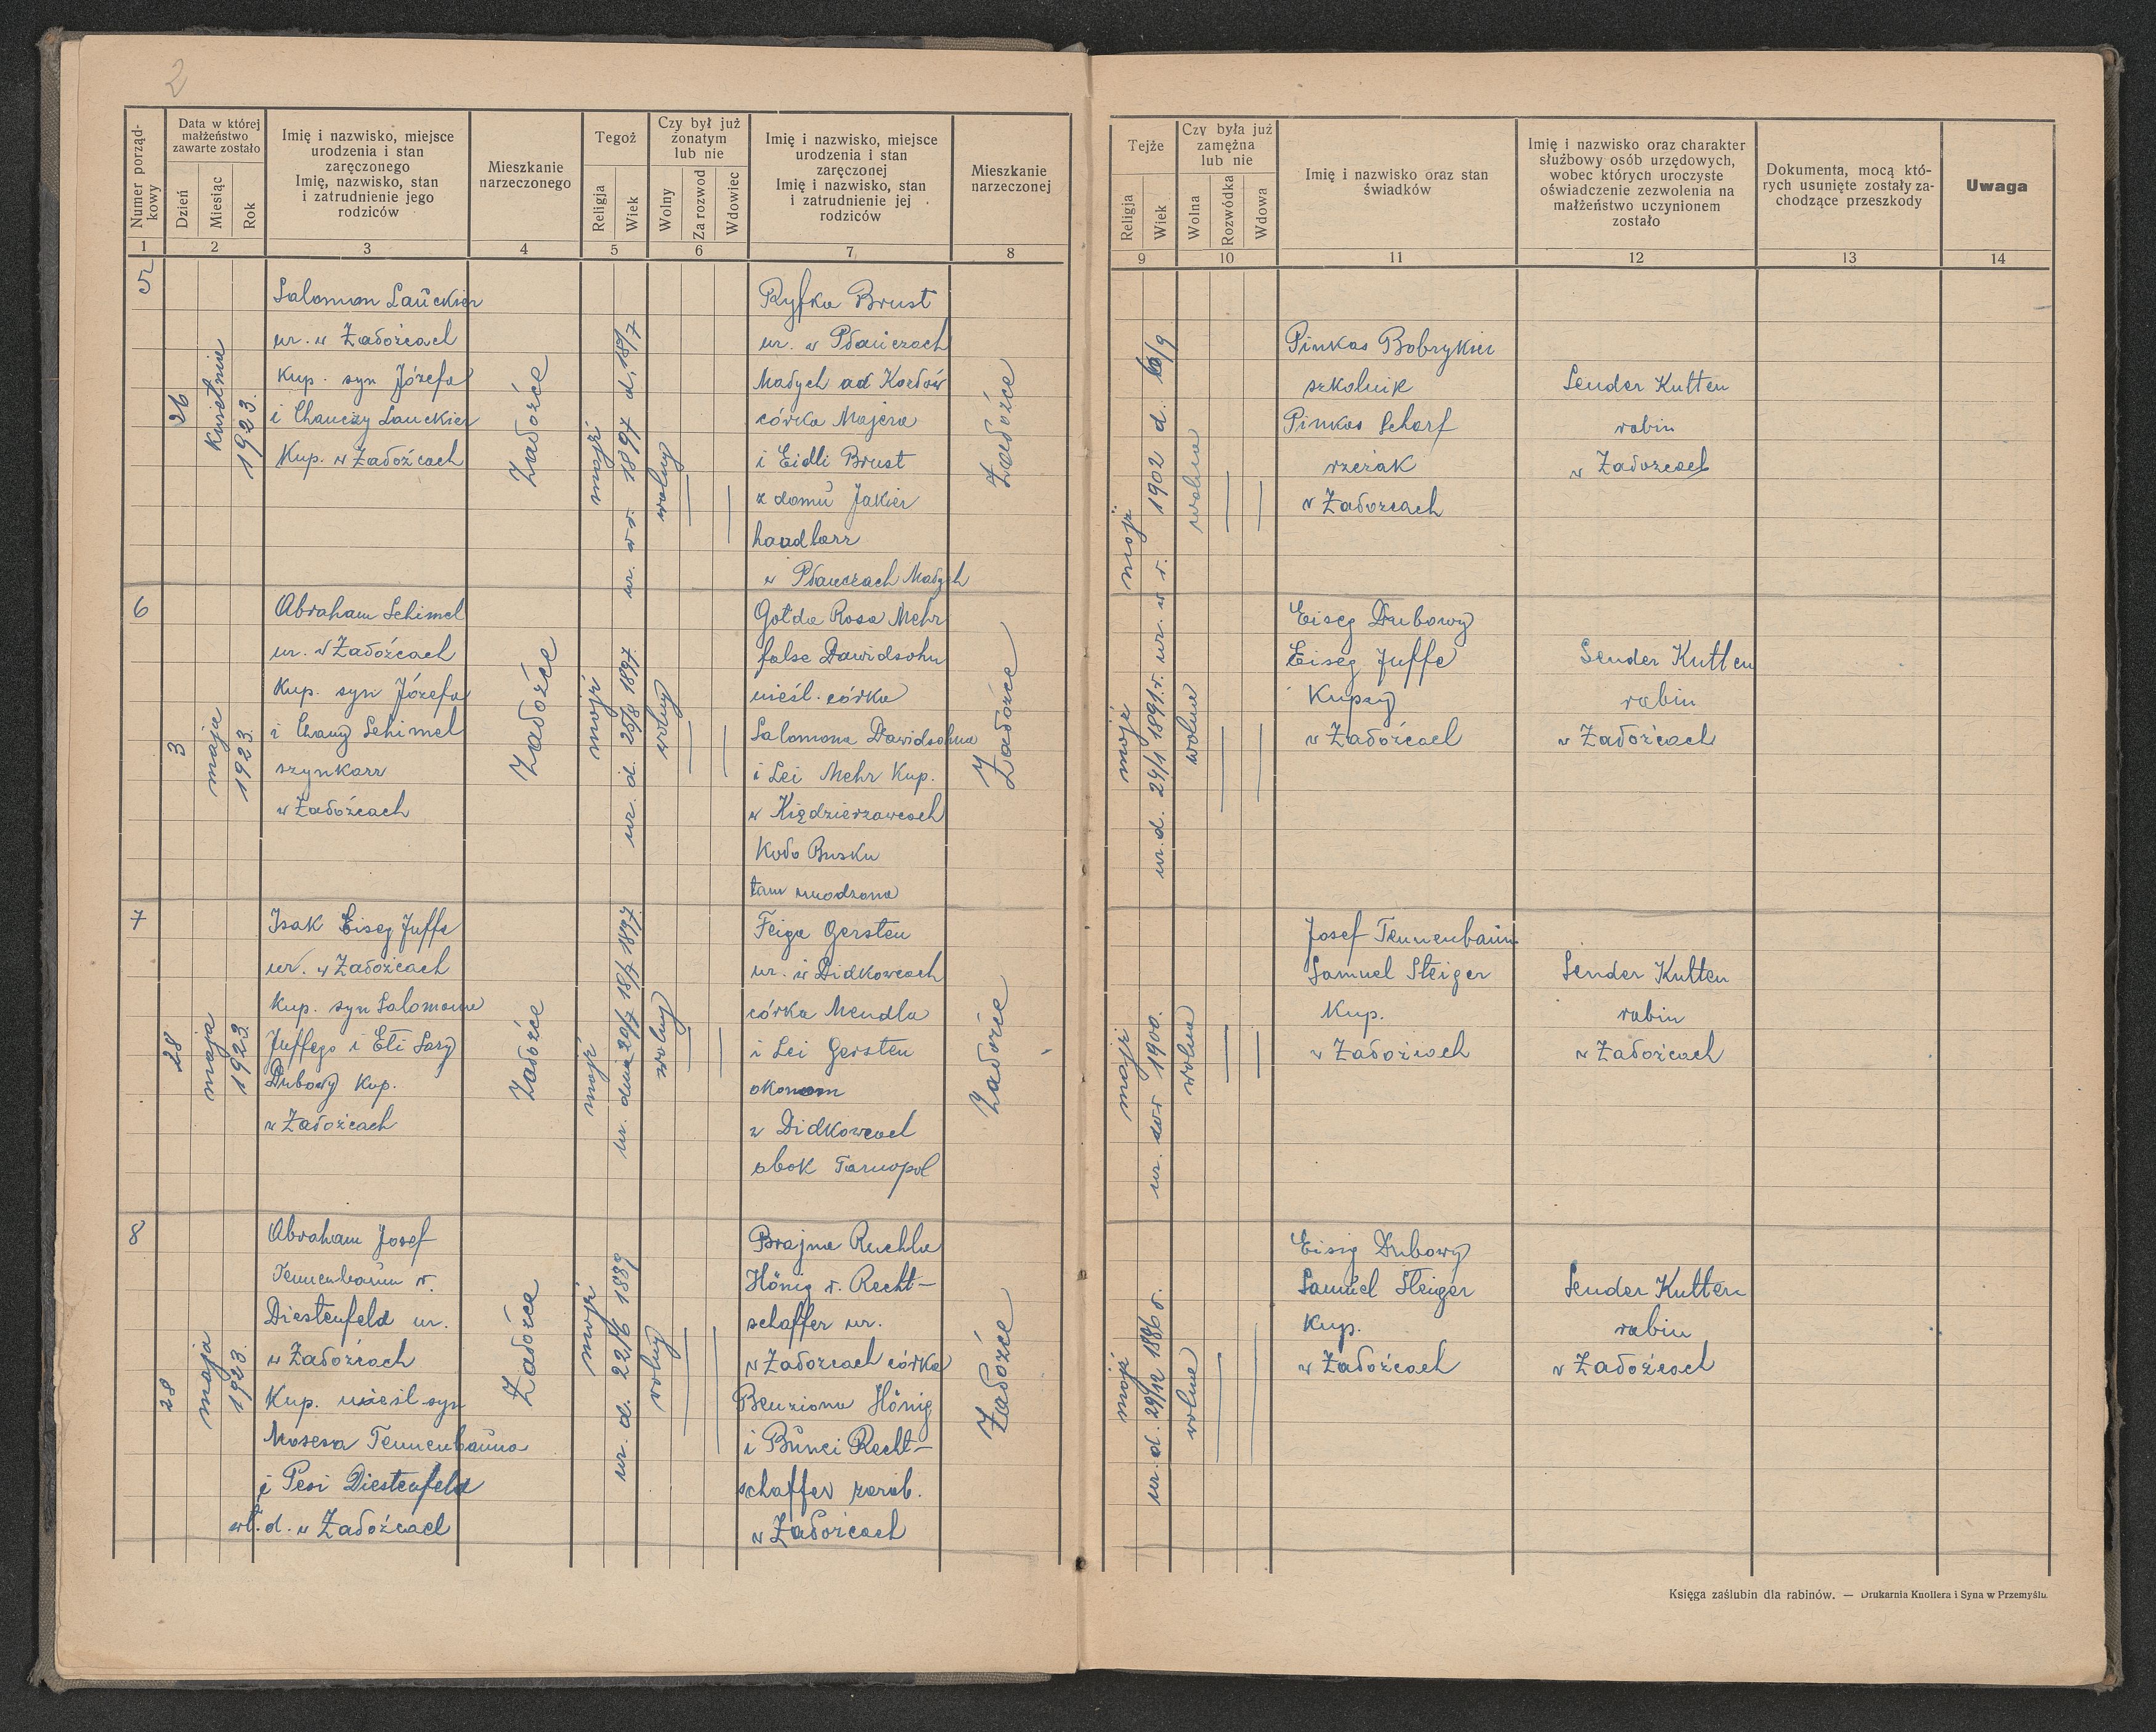 2
Numer porządkowy
Data w której małżeństwo zawarte zostało
Dzień
Miesiąc
Rok
Imię i nazwisko, miejsce
urodzenia i stan
zaręczonego
Imię, nazwisko, stan
i zatrudnienie jego
rodziców
Mieszkanie
narzeczonego
Tegoż
Religja
Wiek
Czy był już
żonatym
lub nie
Wolny
Za rozwod
Wdowiec
Imię i nazwisko, miejsce
urodzenia i stan
zaręczonej
Imię i nazwisko, stan
i zatrudnienie jej
rodziców
Mieszkanie
narzeczonej
1 2 3 4 5 6 7 8
Tejże
Religja
Wiek
Czy była już
zamężna
lub nie
Wolna
Rozwódka
Wdowa
Imię i nazwisko oraz stan
świadków
Imię i nazwisko oraz charakter
służbowy osób urzędowych,
wobec których uroczyste
oświadczenie zezwolenia na
małżeństwo uczynionem
zostało
Dokumenta, mocą któ-
rych usunięte zostały za-
chodzące przeszkody
Uwaga
9 10 11 12 13 14
5
26
kwietnia
1923.
Salomon Lauckier
ur. w Załoźcach
Kup. syn Józefa
i Chanczy Lauckier
Kup. w Załoźcach
Załoźce
mojż
ur. w r. 1897 d. 18/7
wolny
Ryfka Brust
ur. w Płauczach
Małych ad Kozłów
córka Majera
i Eidli Brust
z domu Jakier
handlarz
w Płauczach Małych
Załoźce
mojż
ur. w r. 1902 d.
wolna
Pinkas Bobrykier
szkolnik
Pinkas Scharf
rzezak
w Załozcach
Sender Kutten
rabin
w Załozcach
6
3
maja
1923.
Abraham Schimel
ur. w Załoźcach
Kup. syn Józefa
i Chany Schimel
szynkarz
w Załoźcach
Załoźce
mojż
ur. d. 25/8 1897.
wolny
Gołda Rosa Mehr
false Dawidsohn
nieśl. córka
Salomona Dawidsohna
i Lei Mehr Kup.
w Kiędzierzawcach
Koło Busku
tam urodzona
Załoźce
mojż
ur. d. 24/1 1891. r.
wolna
Eiseg Dubowy
Eiseg Juffe
Kupcy
w Załoźcach
Sender Kutten
rabin
w Załoźcach
7
28
maja
1923.
Isak Eiseg Juffe
ur. w Załoźcach
Kup. syn Salomona
Juffego i Eti Sary
Dubowy Kup.
w Załoźcach
Załoźce
mojż
ur. dnia 20/7 18/7 1897.
wolny
Feiga Gersten
ur. w Didkowcach
córka Mendla
i Lei Gersten
okonom
w Didkowcach
obok Tarnopol
Załoźce
mojż
ur. w r 1900.
wolna
Josef Tennenbaum
Samuel Steiger
Kup.
w Załoźcach
Sender Kutten
rabin
w Załoźcach
8
28
maja
1923.
Abraham Josef
Tennenbaum v.
Diestenfeld ur.
w Załoźcach
Kup. nieśl. syn
Mosesa Tennenbauma
i Pesi Diestenfeld
wł. d. w Załoźcach
Załoźce
mojż
ur. d. 22/6 1889
wolny
Brajna Ruchla
Hönig v. Recht-
schaffer ur.
w Załozcach córka
Benziona Hönig
i Bunci Recht-
schaffer zarob.
w Załoźcach
Załoźce
mojż
ur. d. 29/12 1886 r.
wolna
Eisig Dubowy
Samuel Steiger
Kup.
w Załoźcach
Sender Kutten
rabin
w Załoźcach
Księga zaślubin dla rabinów. — Drukarnia Knollera i Syna w Przemyślu